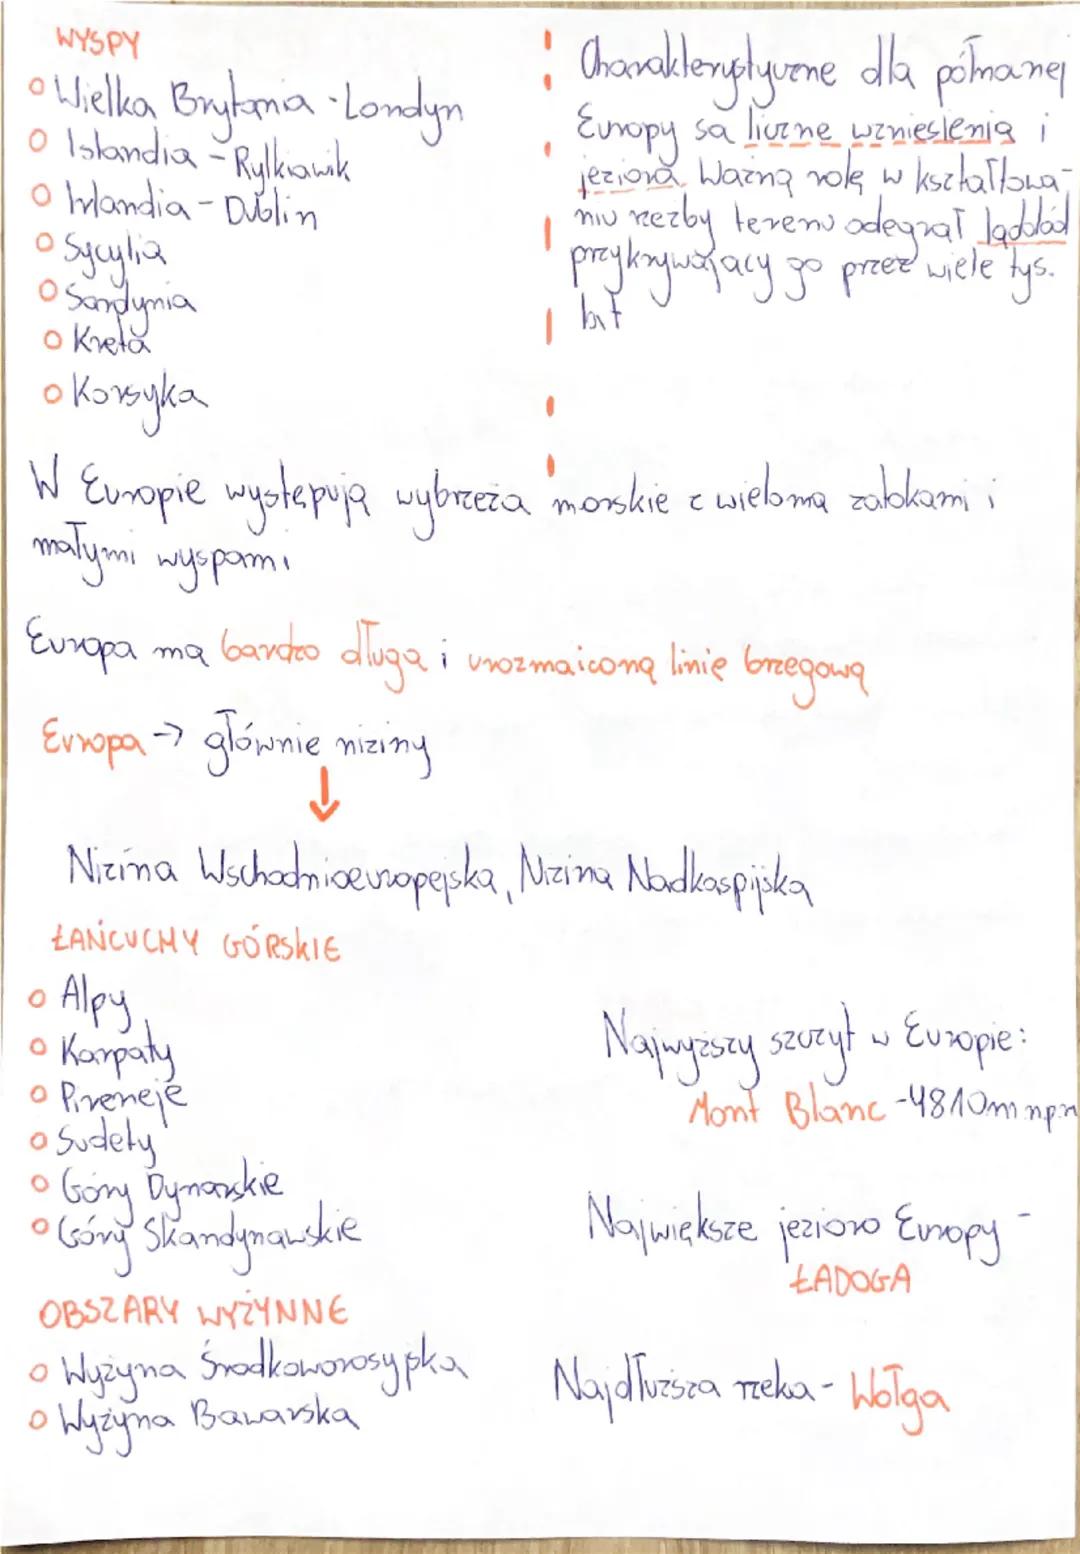 WYSPY
Wielka Brytania - Londyn
Islandia - Rylkiawik
Irlandia - Dublin
Sycylia
Sardynia
Kreta
Korsyka
Charakterystyczne dla północnej
Europy sa liczne wzniesienia i
jeziora. Ważną rolę w kształtowa-
niu rzeźby terenu odegrał lądolód
przykrywający go przez wiele tys.
lat
W Europie występują wybrzeża morskie z wieloma zatokami i
małymi wyspami
Europa ma bardzo długą i urozmaiconą linię brzegową
Europa → głównie niziny
↓
Nizina Wschodnioeuropejska, Nizina Nadkaspijska
ŁAŃCUCHY GÓRSKIE
Alpy
Karpaty
Pireneje
Sudety
Góry Dynarskie
Góry Skandynawskie
Najwyższy szczyt w Europie:
Mont Blanc - 4810m npm
Największe jezioro Europy -
ŁADOGA
OBSZARY WYŻYNNE
Wyżyna Środkoworosyjska
Wyżyna Bawarska
Najdłuższa rzeka - Wołga